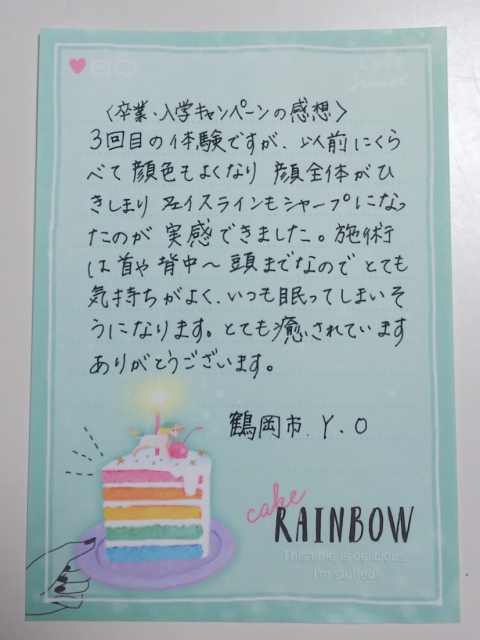 LOVE
Sweet
〈卒業・入学キャンペーンの感想〉
3回目の体験ですが、以前にくら
べて顔色もよくなり 顔全体がひ
きしまり フェイスラインもシャープになっ
たのが 実感できました。施術
は首や背中～頭までなので とても
気持ちがよく、いつも眠ってしまいそ
うになります。とても癒されています
ありがとうございます。
鶴岡市 Y.O
cake
RAINBOW
This time is delicious
I'm stuffed!